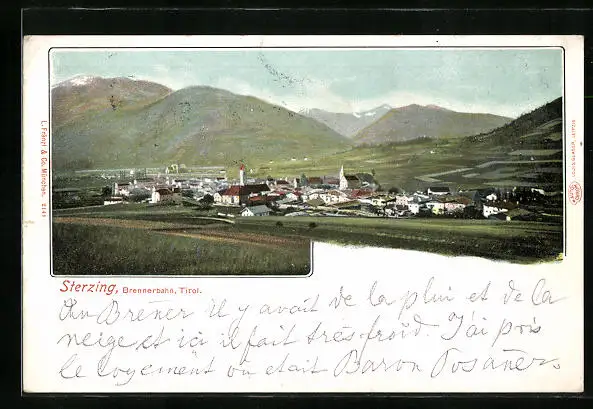 Sterzing, Brennerbahn, Tirol.
Au Brener Il y avait de la pluie et de la
neige et ici il fait très froid. J'ai pris
le logement ou etait Baron Posaner.
L. Fränzl & Co. München. 2144